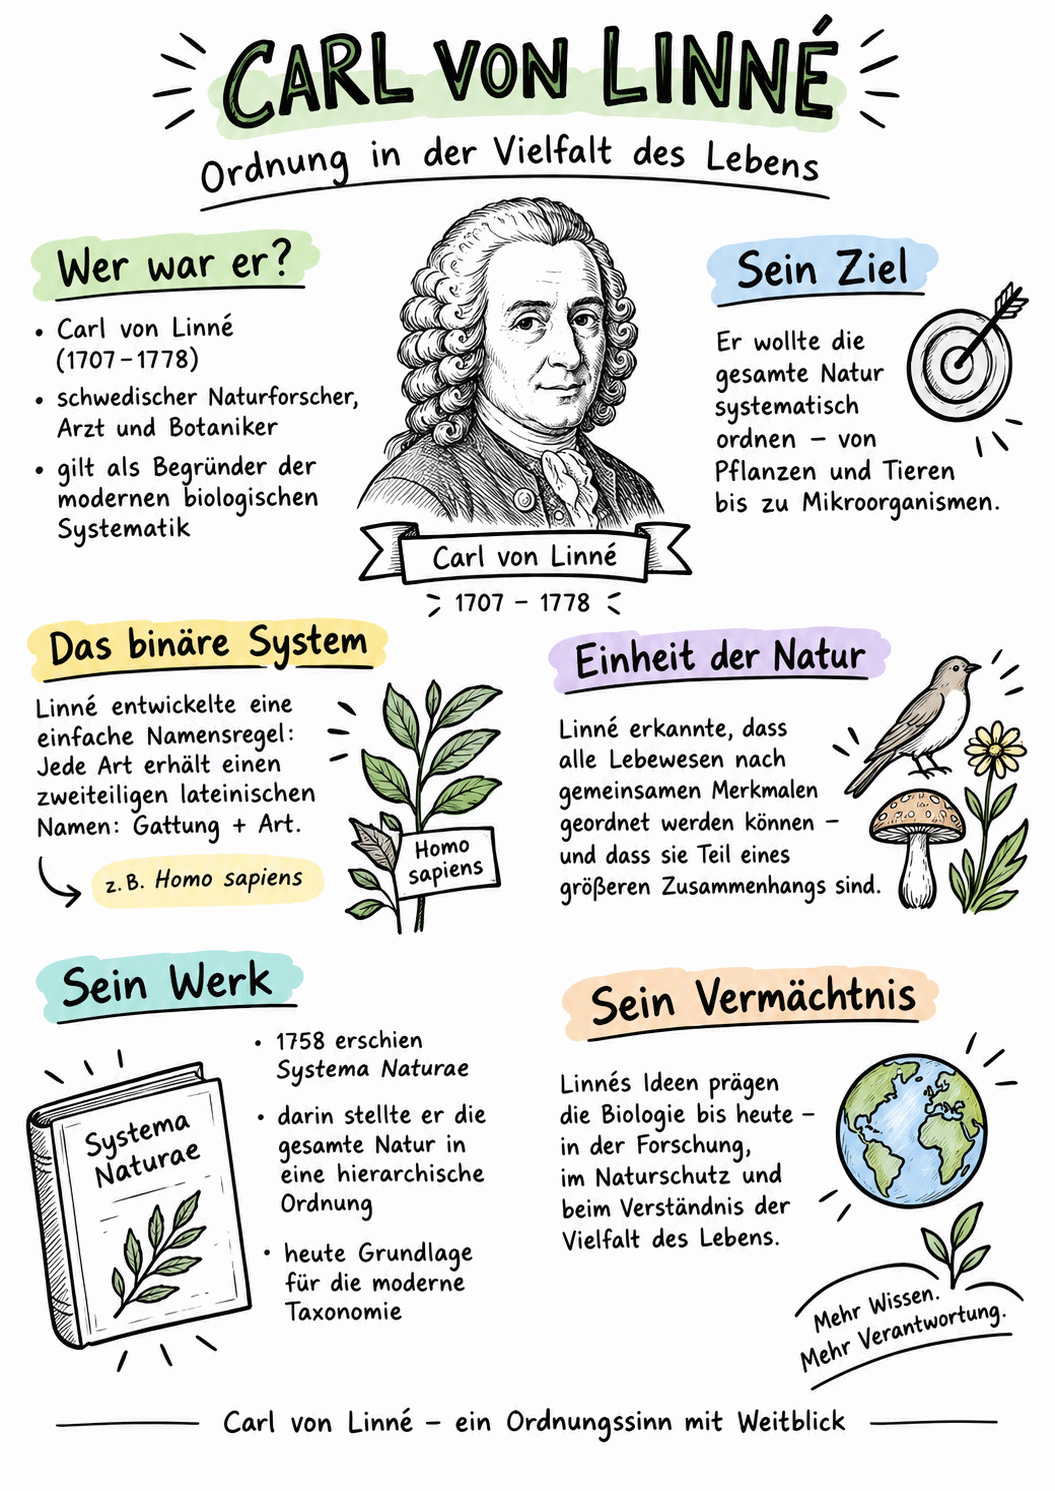 CARL VON LINNÉ
Ordnung in der Vielfalt des Lebens
Wer war er?
• Carl von Linné
(1707–1778)
• schwedischer Naturforscher,
Arzt und Botaniker
• gilt als Begründer der
modernen biologischen
Systematik
Carl von Linné
1707 – 1778
Sein Ziel
Er wollte die
gesamte Natur
systematisch
ordnen – von
Pflanzen und Tieren
bis zu Mikroorganismen.
Das binäre System
Linné entwickelte eine
einfache Namensregel:
Jede Art erhält einen
zweiteiligen lateinischen
Namen: Gattung + Art.
z.B. Homo sapiens
Homo
sapiens
Einheit der Natur
Linné erkannte, dass
alle Lebewesen nach
gemeinsamen Merkmalen
geordnet werden können –
und dass sie Teil eines
größeren Zusammenhangs sind.
Sein Werk
Systema
Naturae
• 1758 erschien
Systema Naturae
• darin stellte er die
gesamte Natur in
eine hierarchische
Ordnung
• heute Grundlage
für die moderne
Taxonomie
Sein Vermächtnis
Linnés Ideen prägen
die Biologie bis heute –
in der Forschung,
im Naturschutz und
beim Verständnis der
Vielfalt des Lebens.
Mehr Wissen.
Mehr Verantwortung.
Carl von Linné – ein Ordnungssinn mit Weitblick